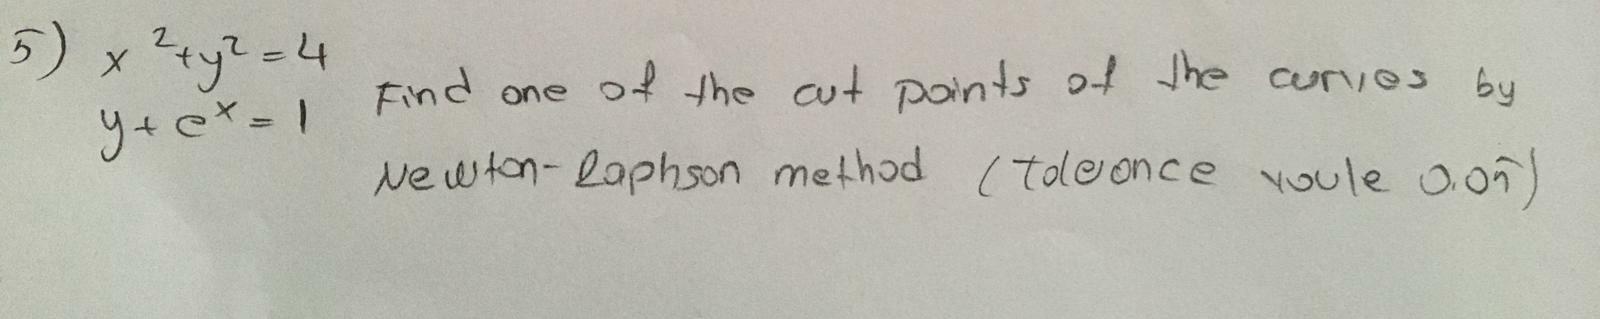 5) x²+y²=4
y+eˣ=1 Find one of the cut points of the curves by
Newton-Raphson method (Tolerance value 0.05)